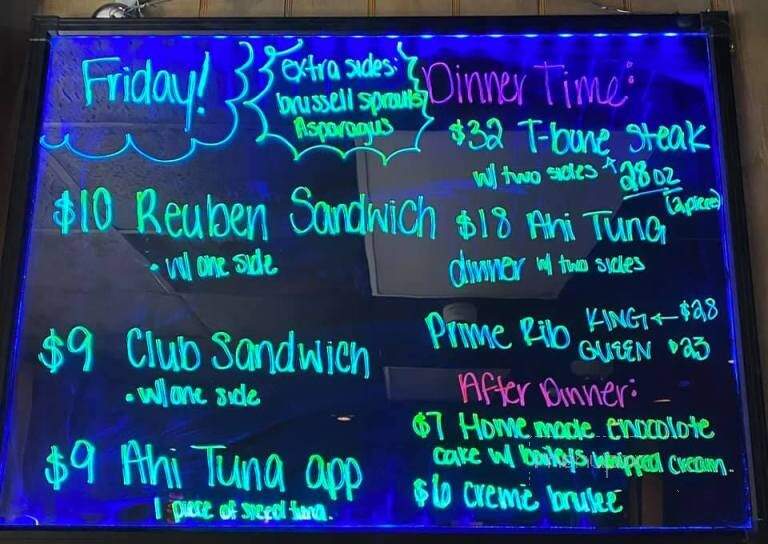 Friday!
extra sides:
brussell sprouts
Asparagus
$10 Reuben Sandwich
• w/ one side
$9 Club Sandwich
• w/ one side
$9 Ahi Tuna app
1 piece of tuna.
Dinner Time:
$32 T-bone steak
w/ two sides + 28 oz
$18 Ahi Tuna
dinner w/ two sides
(2 piece)
Prime Rib KING ← $28
QUEEN $23
After Dinner:
$7 Homemade chocolate
cake w/ baileys whipped cream.
$6 creme brulee